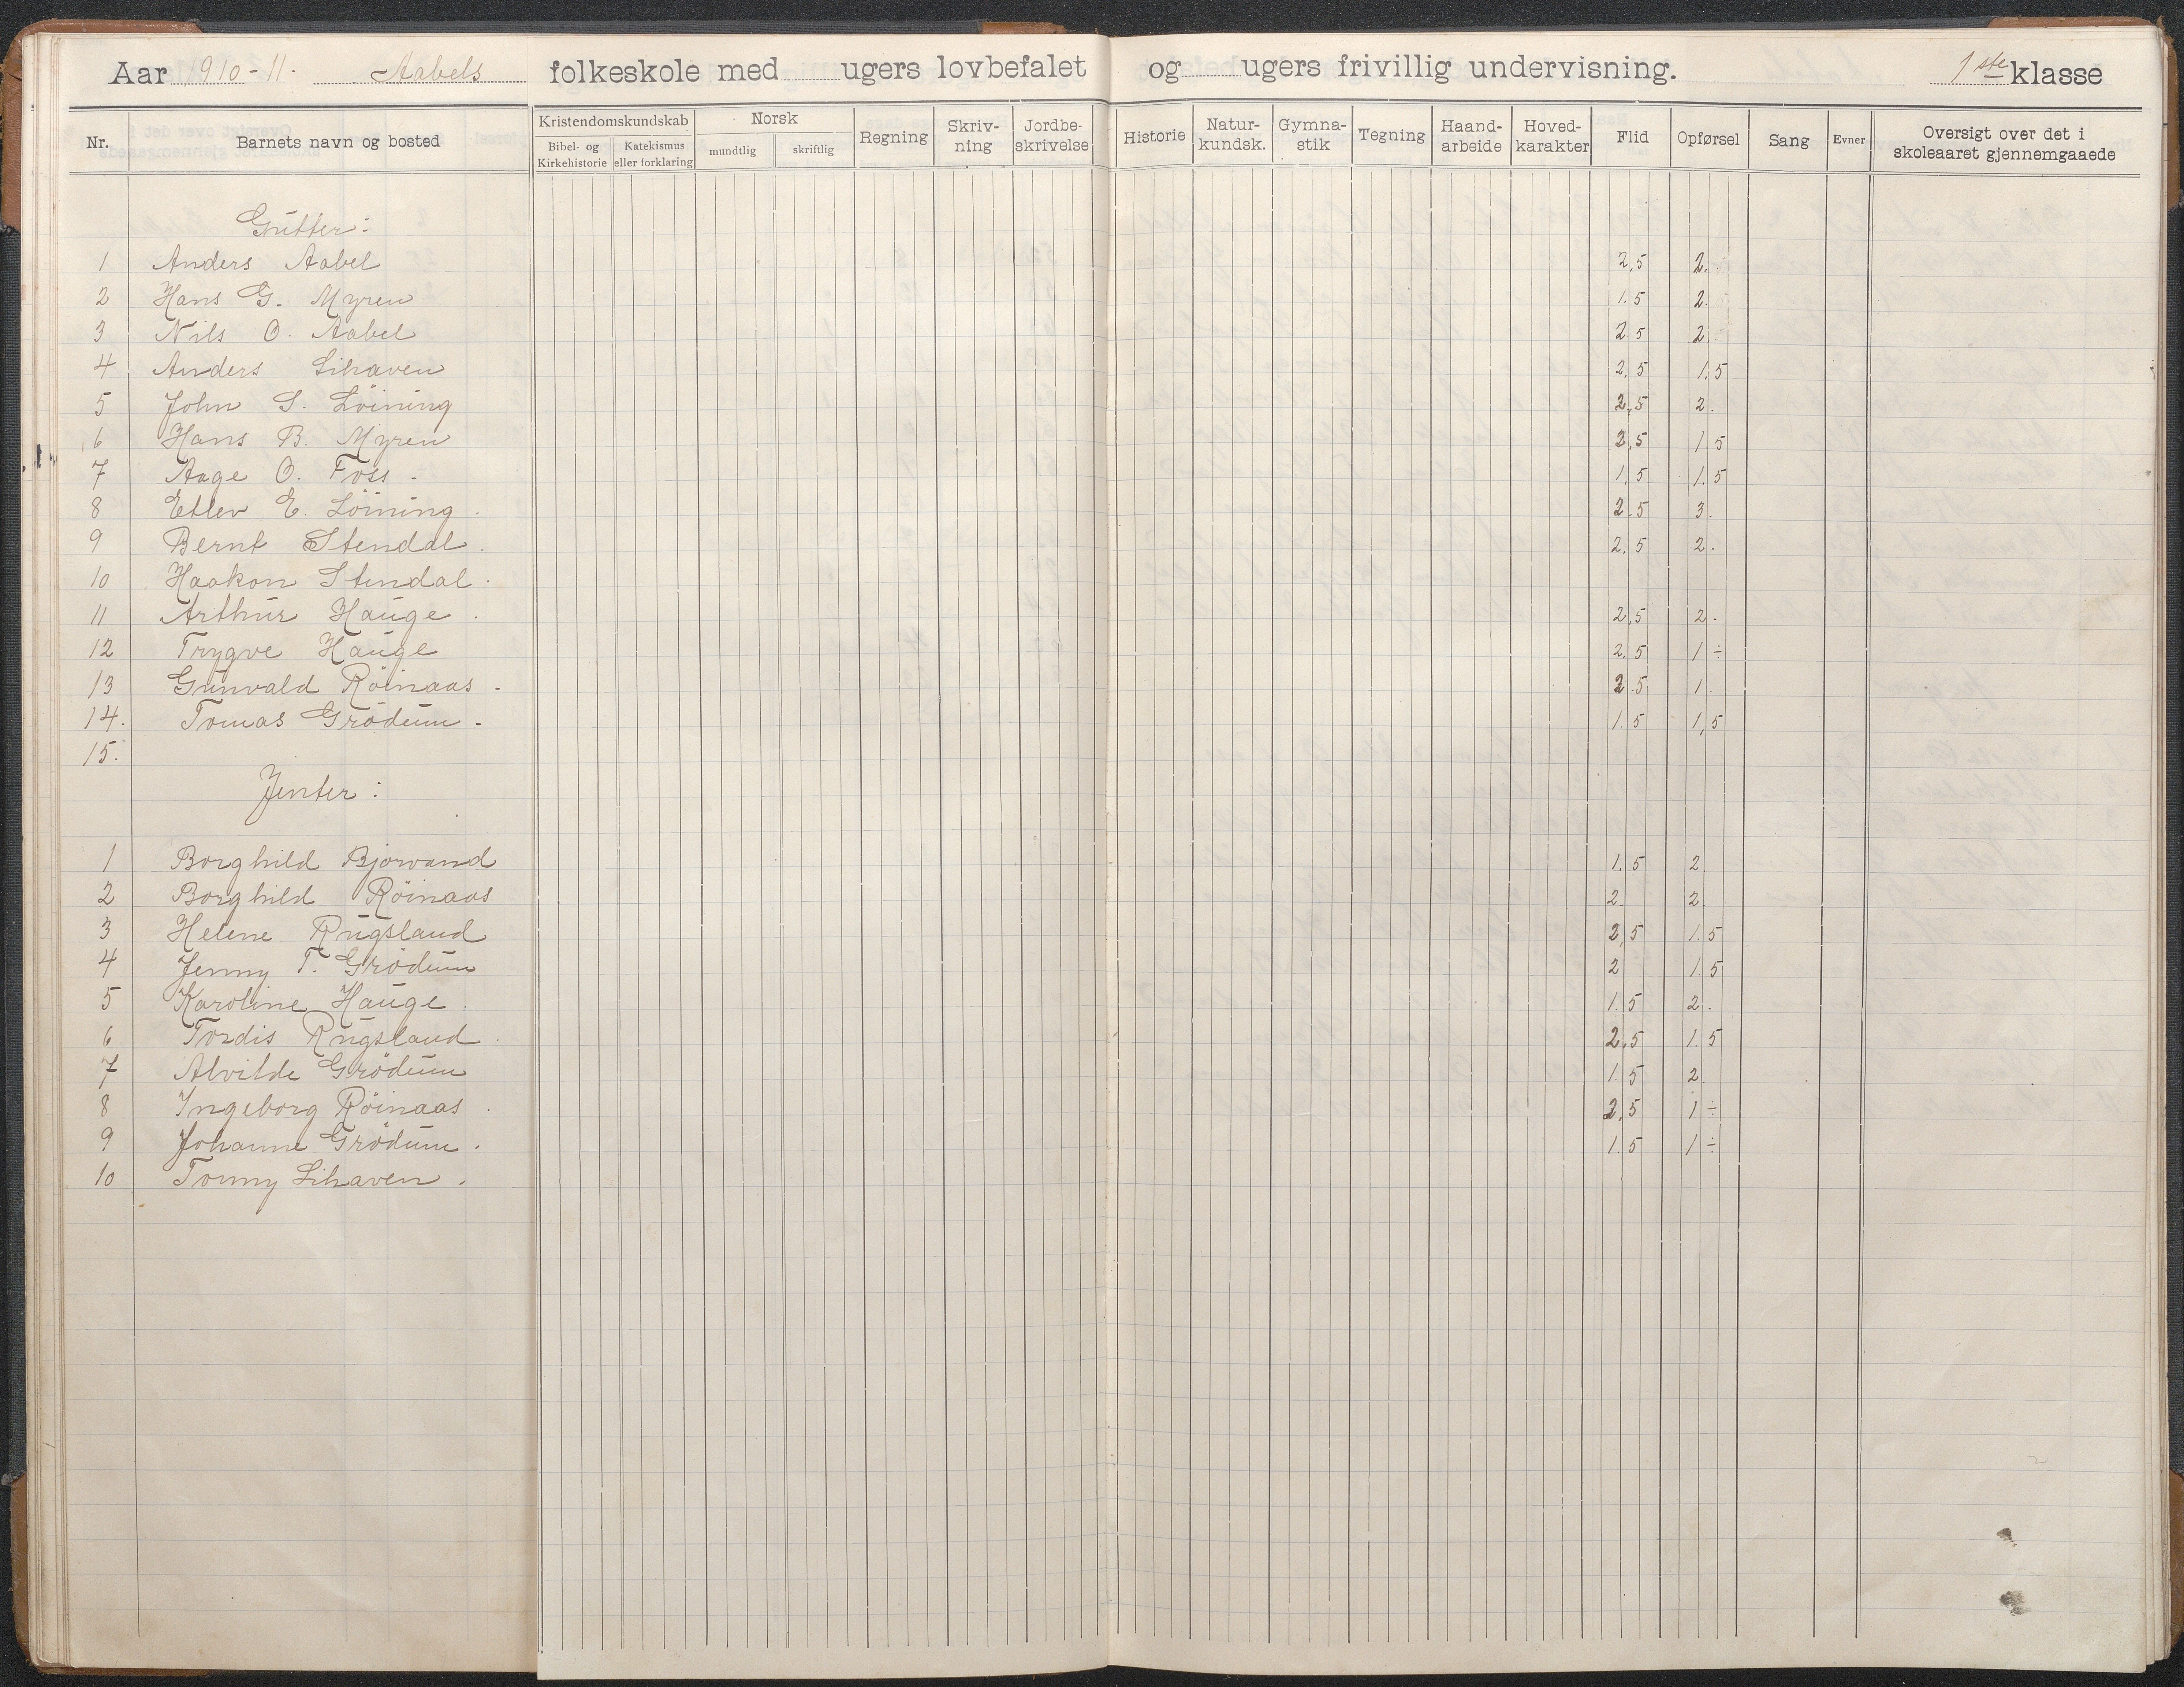 Aar 1910-11. Aabels folkeskole med ugers lovbefalet og ugers frivillig undervisning. 1ste klasse
Nr. Barnets navn og bosted Kristendomskundskab Bibel- og Kirkehistorie Katekismus eller forklaring Norsk mundtlig skriftlig Regning Skriv-ning Jordbe-skrivelse Historie Natur-kundsk. Gymna-stik Tegning Haand-arbeide Hoved-karakter Flid Opførsel Sang Evner Oversigt over det i skoleaaret gjennemgaaede
Gutter:
1 Anders Aabel 2,5 2.
2 Hans G. Myren 1.5 2.
3 Nils O. Aabel 2.5 2
4 Anders Lihaven 2.5 1.5
5 John S. Löining 2,5 2.
6 Hans B. Myren 2,5 1 5
7 Aage O. Foss. 1,5 1.5
8 Etlev E. Löining. 2.5 3.
9 Bernt Stendal. 2.5 2.
10 Haakon Stendal.
11 Arthur Hauge. 2,5 2.
12 Trygve Hauge 2.5 1 ÷
13 Gunvald Röinaas. 2.5 1.
14. Tomas Grödum. 1.5 1,5
15.
Jenter:
1 Borghild Bjorvand 1.5 2
2 Borghild Röinaas 2. 2.
3 Helene Rugsland 2,5 1.5
4 Jenny T. Grödum 2 1.5
5 Karoline Hauge. 1.5 2.
6 Tordis Rugsland. 2,5 1.5
7 Alvilde Grödum 1.5 2.
8 Ingeborg Röinaas. 2,5 1 ÷
9 Johanne Grödum. 1.5 1 ÷
10 Tonny Lihaven.